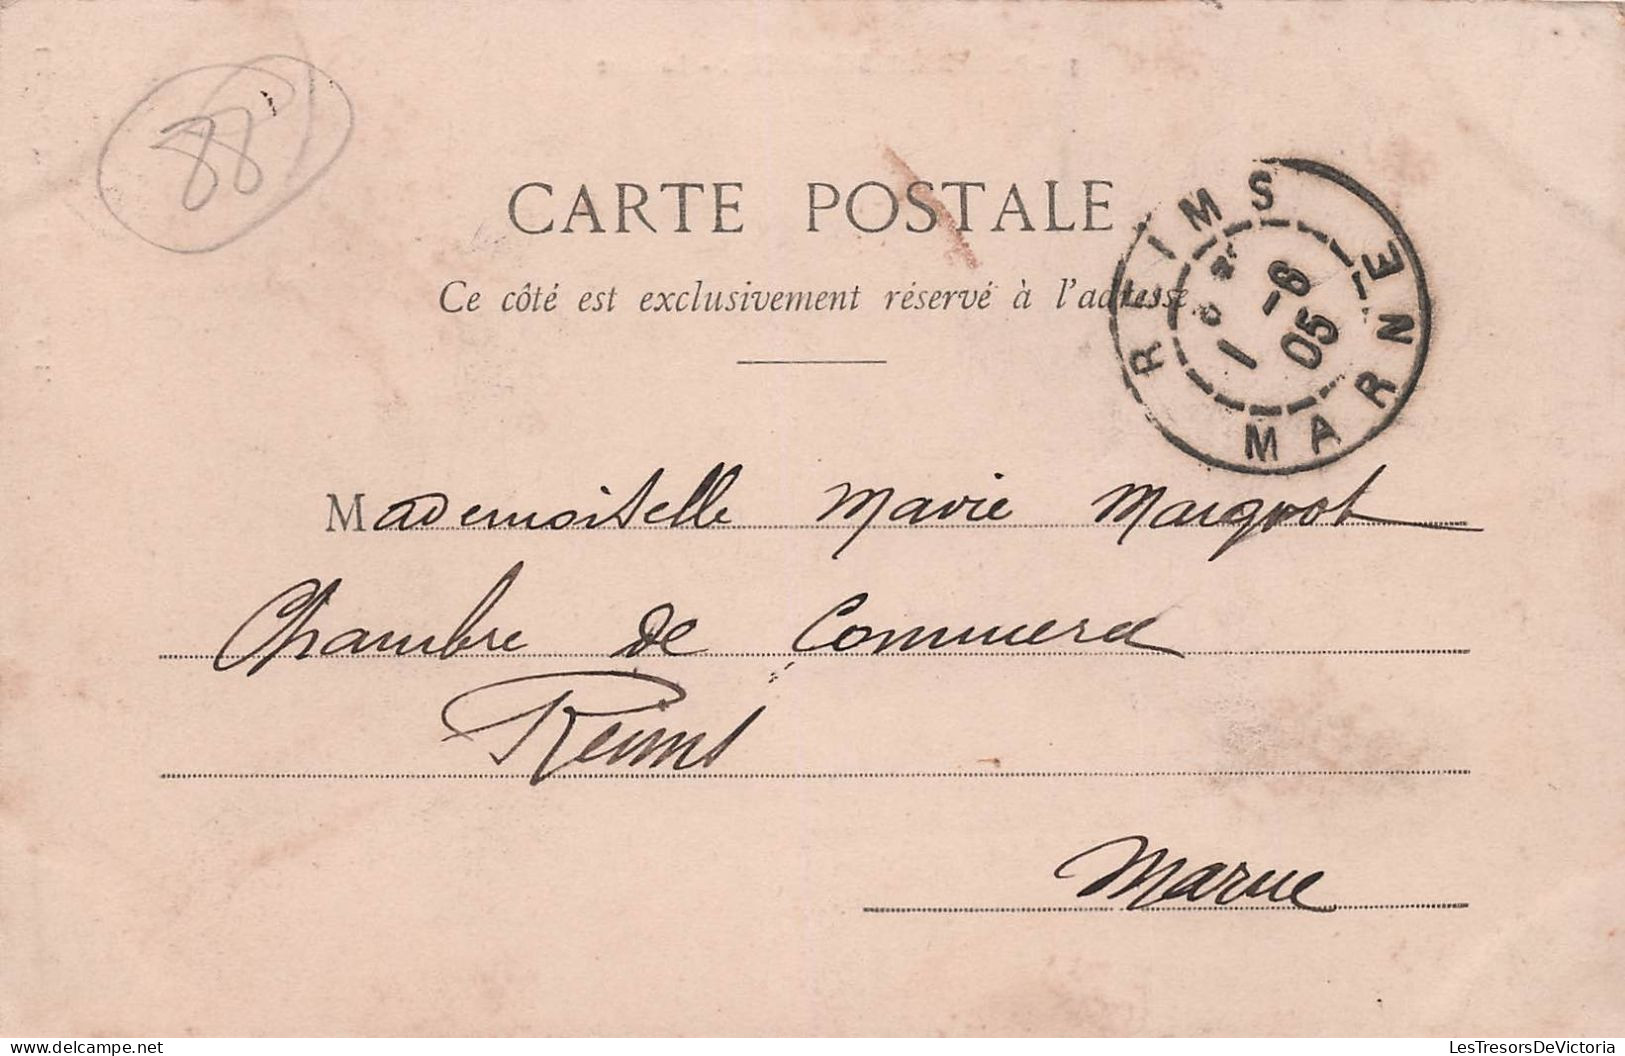 88
CARTE POSTALE
Ce côté est exclusivement réservé à l'adresse
REIMS
1
-6
05
MARNE
Mademoiselle Marie Margrot
Chambre de Commerce
Reims
Marne
LesTresorsDeVictoria